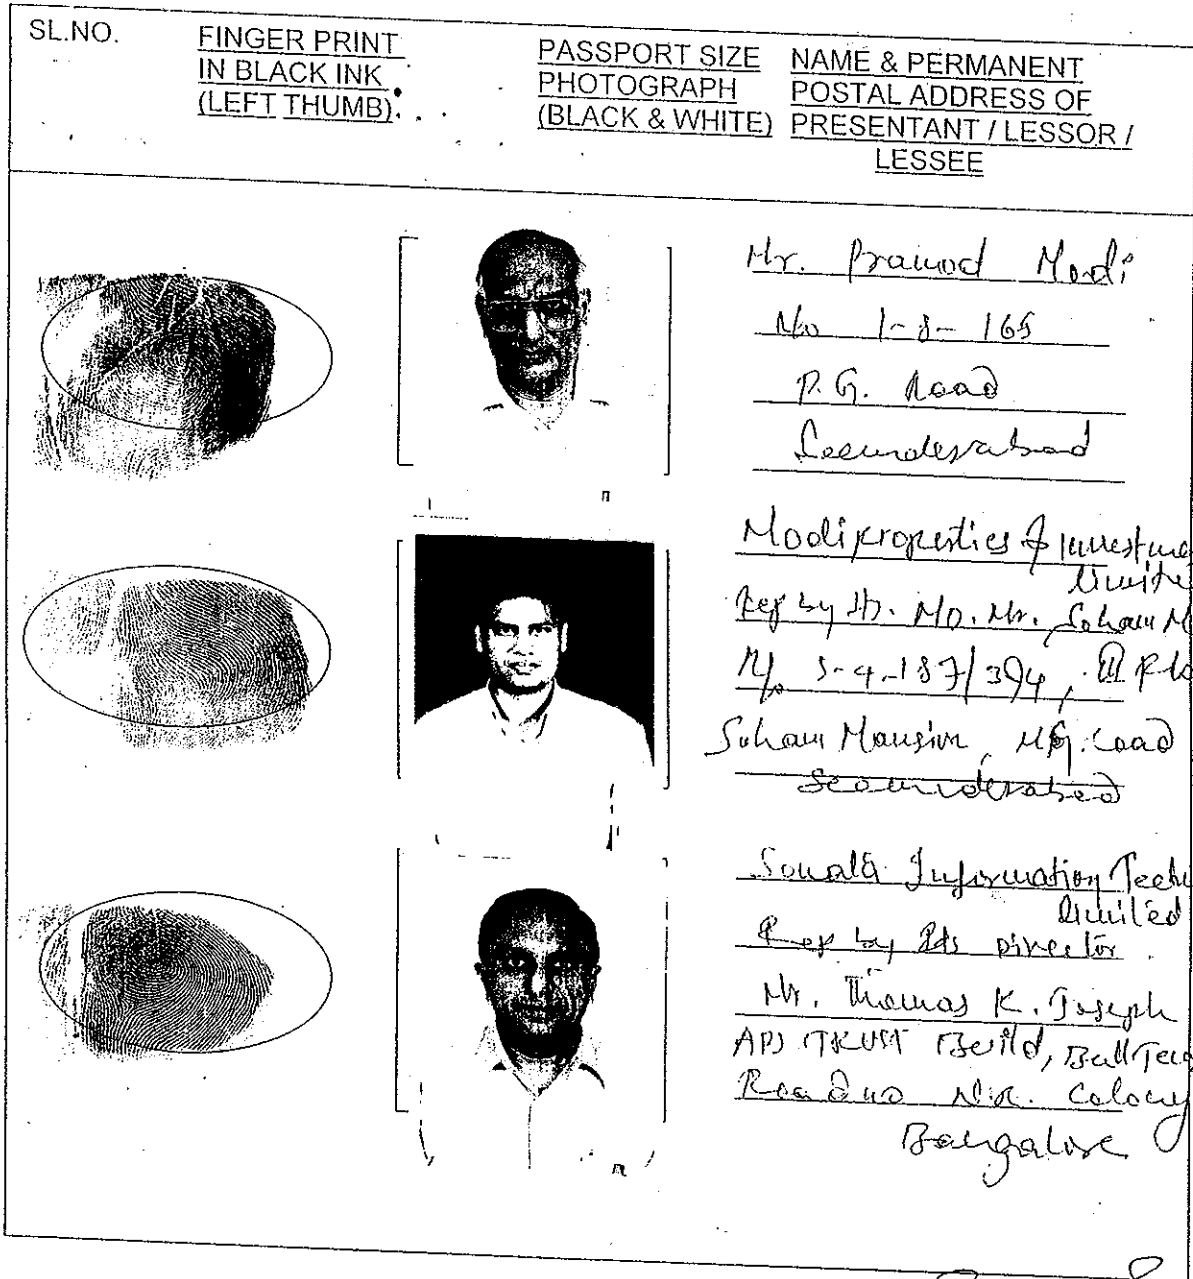 SL.NO.
FINGER PRINT
IN BLACK INK
(LEFT THUMB).
PASSPORT SIZE
PHOTOGRAPH
(BLACK & WHITE)
NAME & PERMANENT
POSTAL ADDRESS OF
PRESENTANT / LESSOR /
LESSEE
Mr. Pramod Modi
No 1-8-165
P.G. Road
Secunderabad
Modi properties & Investme
limite
Rep by its. MD. Mr. Soham M
R/o 5-4-187/3&4, III Flo
Soham Mansion, M.G. Road
Secunderabad
Information Tech
limited
Rep by Its Director
Mr. Thomas K. Joseph
TRUST Build, Bull Tem
Road N.R. Colony
Bangalore